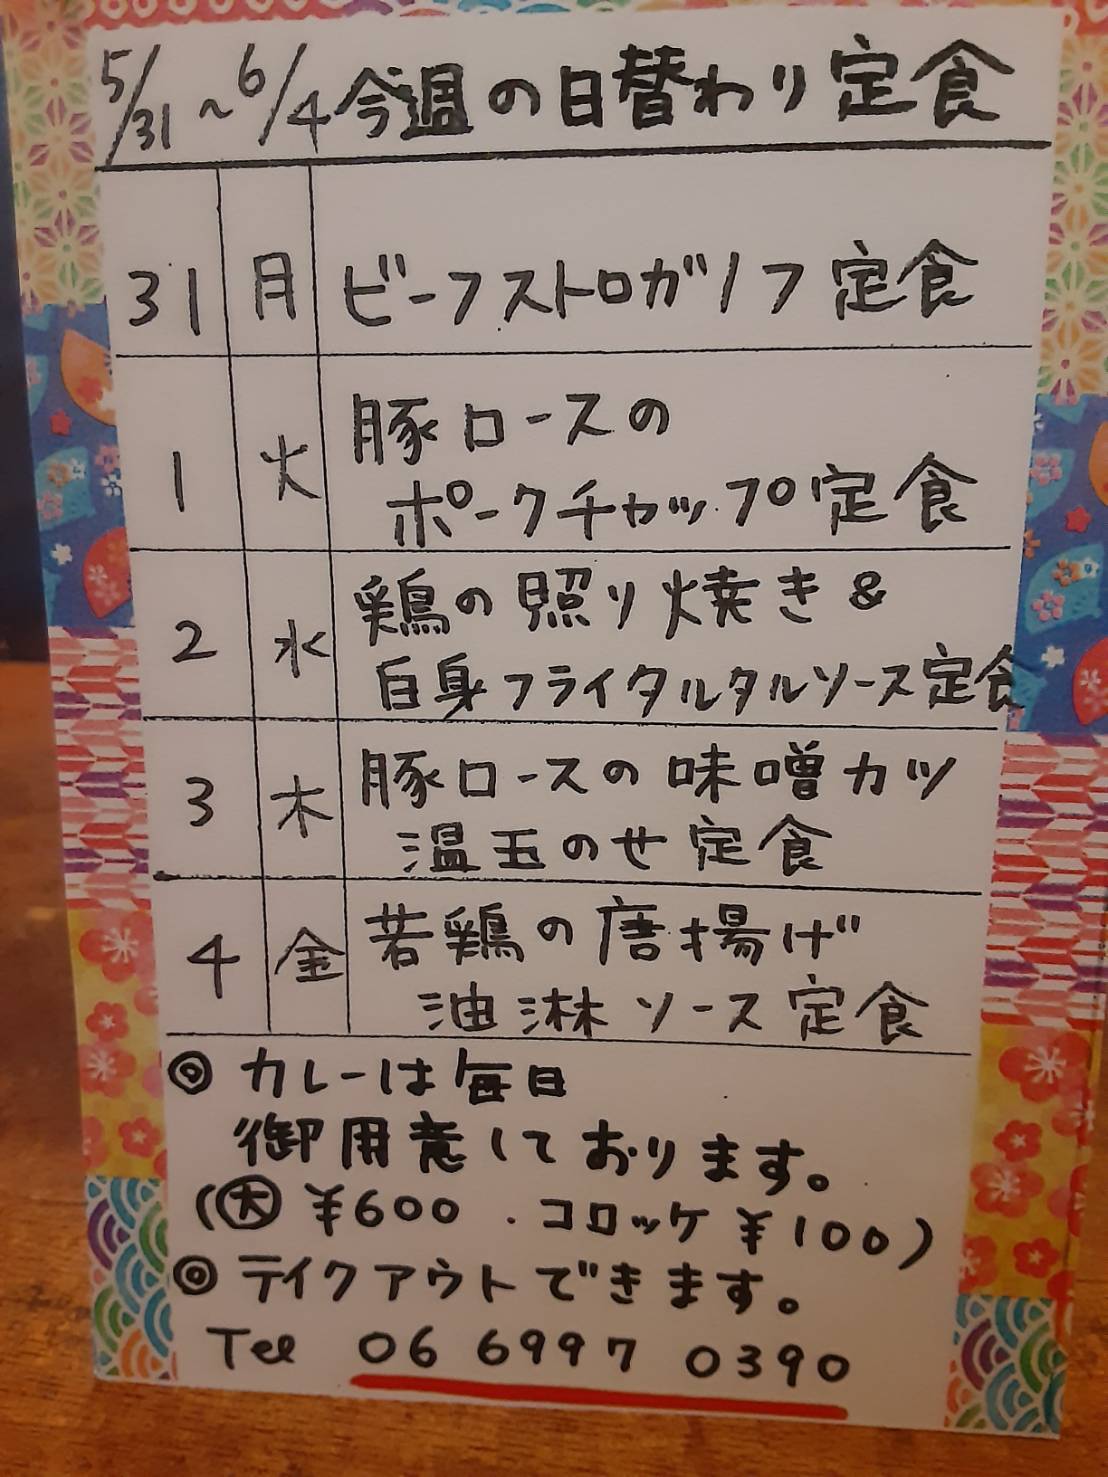 5/31~6/4今週の日替わり定食
31 月 ビーフストロガノフ定食
1 火 豚ロースの
ポークチャップ定食
2 水 鶏の照り焼き&
白身フライタルタルソース定食
3 木 豚ロースの味噌カツ
温玉のせ定食
4 金 若鶏の唐揚げ
油淋ソース定食
◎カレーは毎日
御用意しております。
(大 ¥600 . コロッケ ¥100)
◎テイクアウトできます。
Tel 06 6997 0390